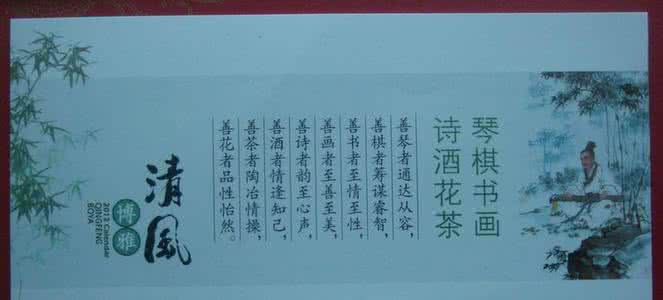 琴棋书画
诗酒花茶
善琴者通达从容，
善棋者筹谋睿智，
善书者至情至性，
善画者至善至美，
善诗者韵至心声，
善酒者情逢知己，
善茶者陶冶情操，
善花者品性怡然。
清風
博雅
2011 Calendar
QINGFENG
BOYA